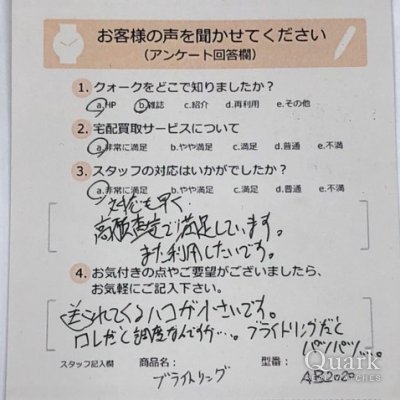 お客様の声を聞かせてください
(アンケート回答欄)
1. クォークをどこで知りましたか?
a.HP b.雑誌 c.紹介 d.再利用 e.その他
2. 宅配買取サービスについて
a.非常に満足 b.やや満足 c.満足 d.普通 e.不満
3. スタッフの対応はいかがでしたか?
a.非常に満足 b.やや満足 c.満足 d.普通 e.不満
対応も早く
高価査定で満足しています。
また利用したいです。
4. お気付きの点やご要望がございましたら、
お気軽にご記入下さい。
送られてくるハコが小さいです。
ロレだと調度なんですが…。ブライトリングだと
パツパツ…。
スタッフ記入欄 商品名: 型番:
ブライトリング AB2020
Quark
WATCHES